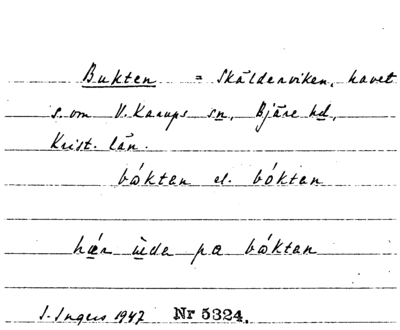 Bukten = Skälderviken, havet
s. om V. Karups sn, Bjäre hd,
Krist. län.
bóktan el. bóktan
hær ùda pa bóktan
I. Ingers 1947 Nr 5324.